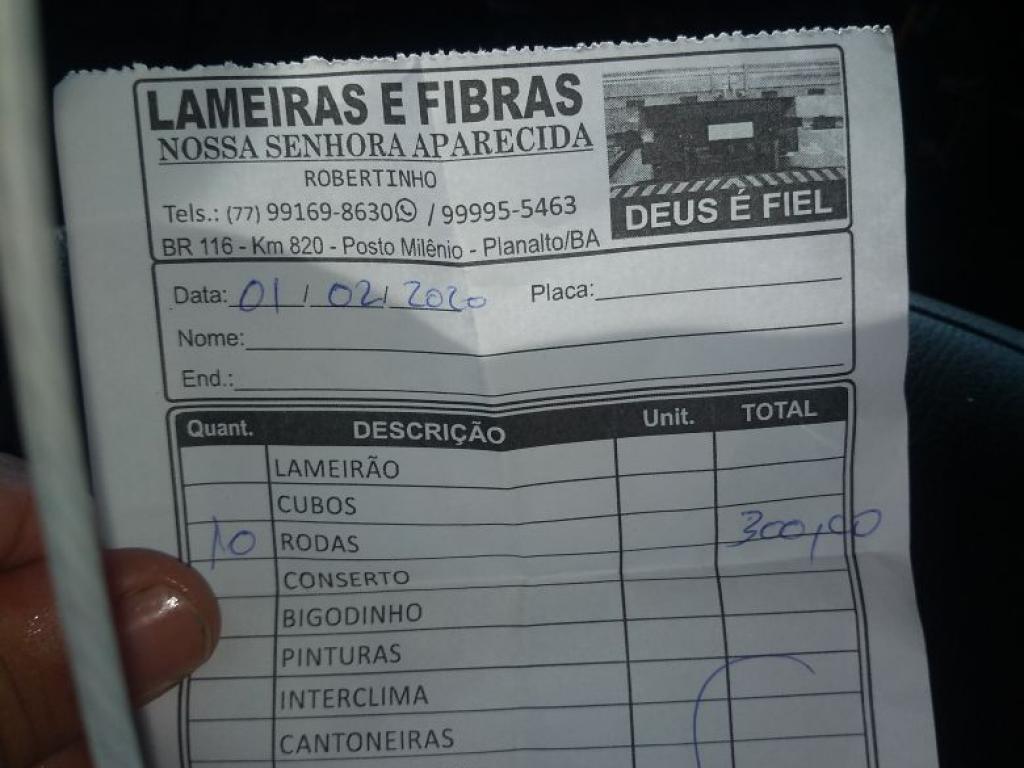 LAMEIRAS E FIBRAS
NOSSA SENHORA APARECIDA
ROBERTINHO
Tels.: (77) 99169-8630 / 99995-5463
BR 116 - Km 820 - Posto Milênio - Planalto/BA
DEUS É FIEL
Data: 01 / 02 / 2020 Placa:
Nome:
End.:
Quant. DESCRIÇÃO Unit. TOTAL
LAMEIRÃO
CUBOS
10 RODAS 300,00
CONSERTO
BIGODINHO
PINTURAS
INTERCLIMA
CANTONEIRAS